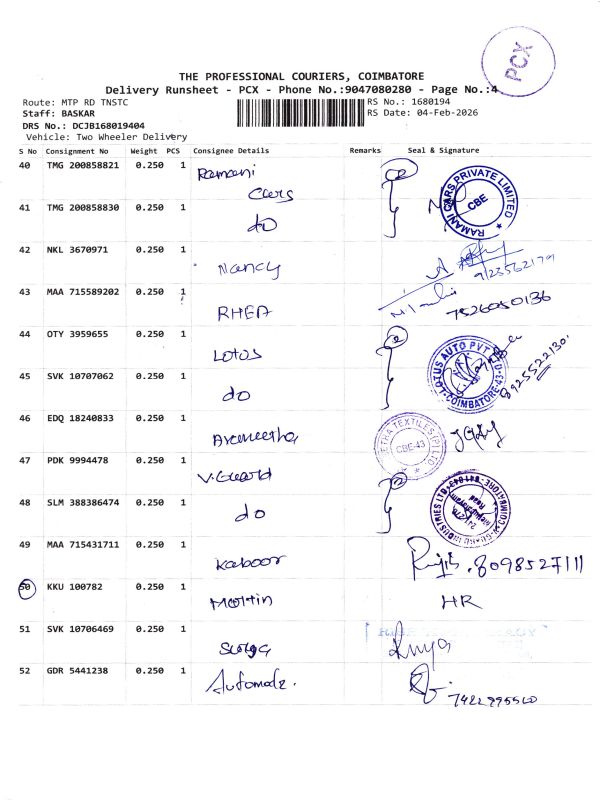 PCX
THE PROFESSIONAL COURIERS, COIMBATORE
Delivery Runsheet - PCX - Phone No.:9047080280 - Page No.:4
Route: MTP RD TNSTC RS No.: 1680194
Staff: BASKAR RS Date: 04-Feb-2026
DRS No.: DCJB168019404
Vehicle: Two Wheeler Delivery
S No Consignment No Weight PCS Consignee Details Remarks Seal & Signature
40 TMG 200858821 0.250 1 Ramani Cars
RAMANI CARS PRIVATE LIMITED CBE
41 TMG 200858830 0.250 1 do
42 NKL 3670971 0.250 1 Nancy
43 MAA 715589202 0.250 1 RHEA 7526050136
44 OTY 3959655 0.250 1 Lotus
LOTUS AUTO PVT LTD COIMBATORE-43 8925522130
45 SVK 10707062 0.250 1 do
46 EDQ 18240833 0.250 1
TEXTILES (P) LTD CBE-43
47 PDK 9994478 0.250 1 V.Guard
48 SLM 388386474 0.250 1 do
INDUSTRIES LTD
49 MAA 715431711 0.250 1 Kaboor 8098527111
50 KKU 100782 0.250 1 Martin HR
51 SVK 10706469 0.250 1
52 GDR 5441238 0.250 1 Automode.